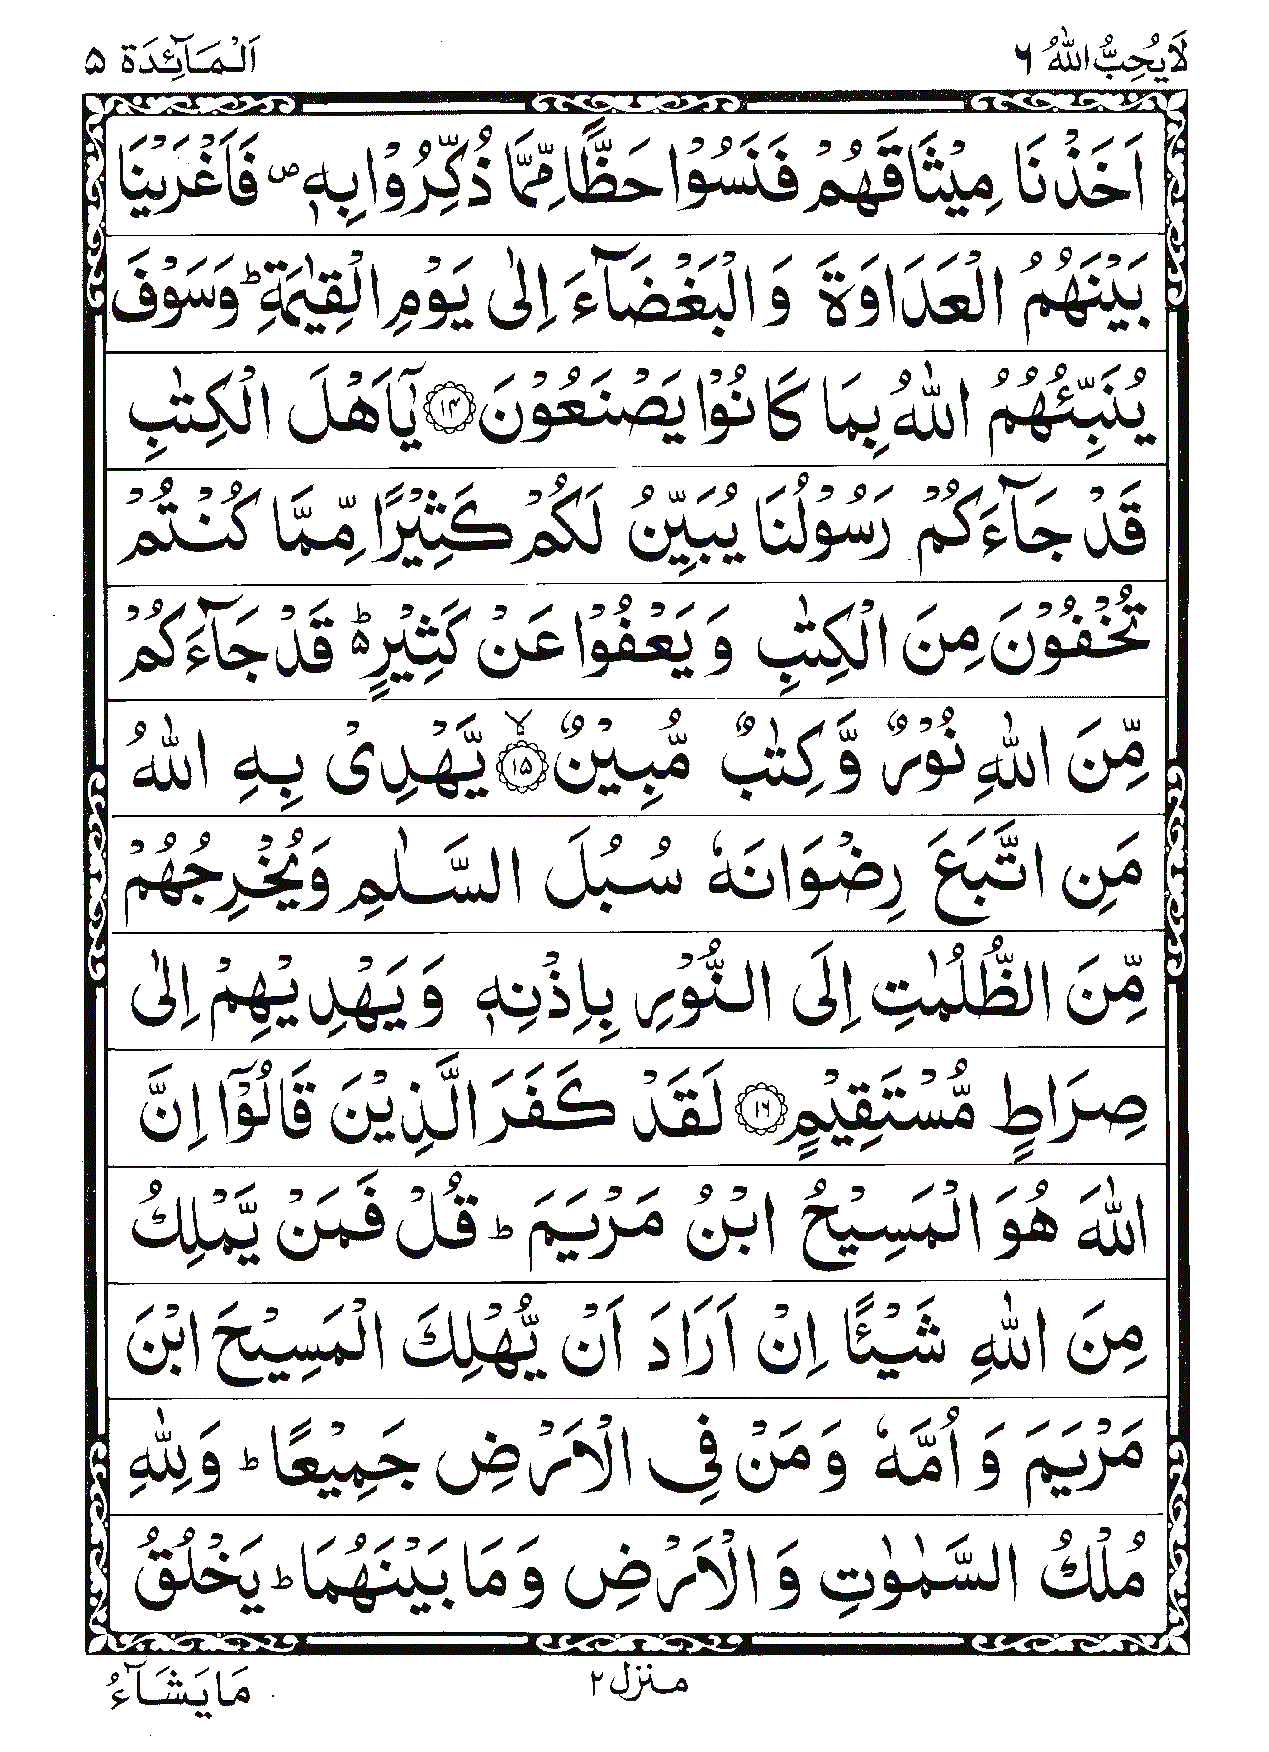 لَا يُحِبُّ اللّٰهُ ٦
اَلْمَآئِدَة ٥
اَخَذْنَا مِيْثَاقَهُمْ فَنَسُوْا حَظًّا مِّمَّا ذُكِّرُوْا بِهٖ ۪ فَاَغْرَيْنَا
بَيْنَهُمُ الْعَدَاوَةَ وَ الْبَغْضَآءَ اِلٰى يَوْمِ الْقِيٰمَةِ ؕ وَسَوْفَ
يُنَبِّئُهُمُ اللّٰهُ بِمَا كَانُوْا يَصْنَعُوْنَ ۝۱۴ يٰۤاَهْلَ الْكِتٰبِ
قَدْ جَآءَكُمْ رَسُوْلُنَا يُبَيِّنُ لَكُمْ كَثِيْرًا مِّمَّا كُنْتُمْ
تُخْفُوْنَ مِنَ الْكِتٰبِ وَ يَعْفُوْا عَنْ كَثِيْرٍ ؕ۬ قَدْ جَآءَكُمْ
مِّنَ اللّٰهِ نُوْرٌ وَّ كِتٰبٌ مُّبِيْنٌ ۙ۝۱۵ يَّهْدِىْ بِهِ اللّٰهُ
مَنِ اتَّبَعَ رِضْوَانَهٗ سُبُلَ السَّلٰمِ وَيُخْرِجُهُمْ
مِّنَ الظُّلُمٰتِ اِلَى النُّوْرِ بِاِذْنِهٖ وَ يَهْدِيْهِمْ اِلٰى
صِرَاطٍ مُّسْتَقِيْمٍ ۝۱۶ لَقَدْ كَفَرَ الَّذِيْنَ قَالُوْۤا اِنَّ
اللّٰهَ هُوَ الْمَسِيْحُ ابْنُ مَرْيَمَ ؕ قُلْ فَمَنْ يَّمْلِكُ
مِنَ اللّٰهِ شَيْئًا اِنْ اَرَادَ اَنْ يُّهْلِكَ الْمَسِيْحَ ابْنَ
مَرْيَمَ وَ اُمَّهٗ وَ مَنْ فِى الْاَرْضِ جَمِيْعًا ؕ وَلِلّٰهِ
مُلْكُ السَّمٰوٰتِ وَ الْاَرْضِ وَ مَا بَيْنَهُمَا ؕ يَخْلُقُ
منزل ۲
مَا يَشَآءُ